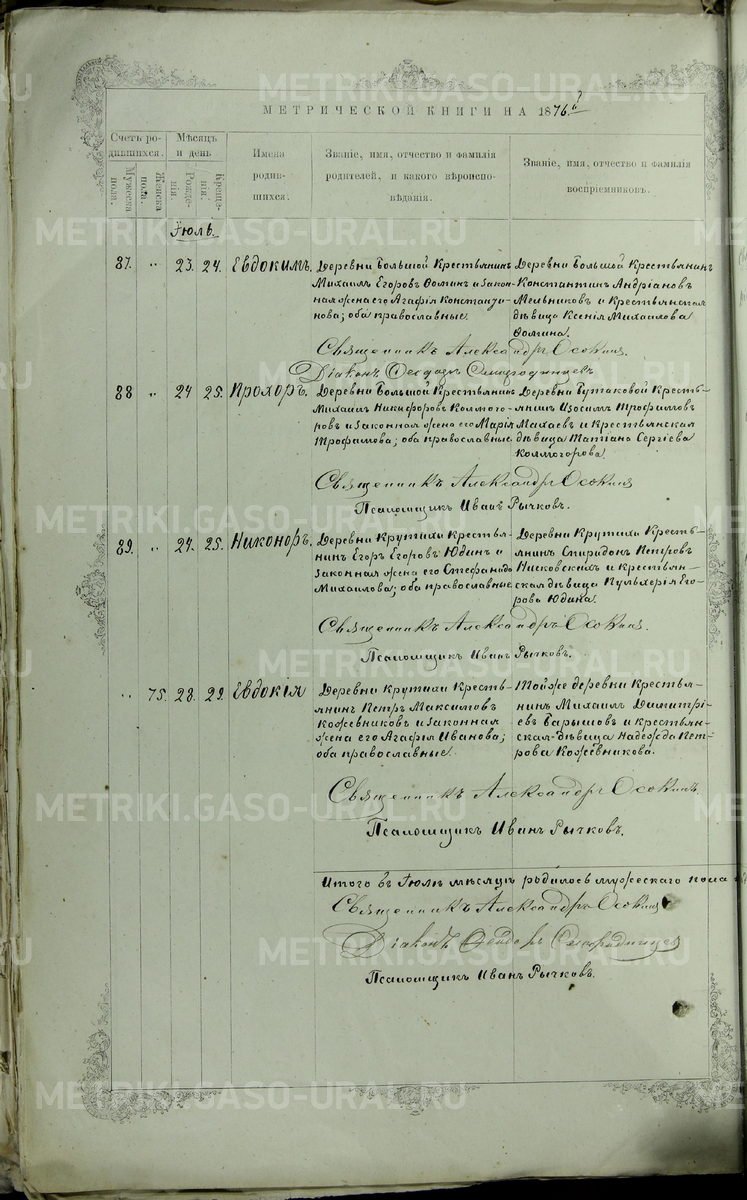 МЕТРИЧЕСКОЙ КНИГИ НА 1876й
Счетъ ро-
дившихся.
Мужеска
пола.
Женска
пола.
Мѣсяцъ
и день
Рожде-
нія.
Креще-
нія.
Имена
родив-
шихся.
Званіе, имя, отчество и фамилія
родителей, и какого вѣроиспо-
вѣданія.
Званіе, имя, отчество и фамилія
воспріемниковъ.
Іюль.
87. " 23. 24. Евдокимъ.
Деревни Большой Крестьянинъ
Михаилъ Егоровъ Ѳоминъ и закон-
ная жена его Агафія Констанди-
нова; оба православные.
Деревни Большой Крестьянинъ
Константинъ Андріановъ
Мельниковъ и Крестьянская
дѣвица Ксенія Михаилова
Ѳомина.
Священникъ Александръ Осокинъ.
Діаконъ Ѳеодоръ Смородинцевъ
88 " 24 25. Прохоръ.
Деревни Большой Крестьянинъ
Михаилъ Никифоровъ Колмого-
ровъ и законная жена его Марія
Трофимова; оба православные
Деревни Бутаковой Кресть-
янинъ Изосимъ Трофимовъ
Михаевъ и Крестьянская
дѣвица Татіана Сергіева
Колмогорова.
Священникъ Александръ Осокинъ
Псаломщикъ Иванъ Рычковъ.
89. " 24. 25. Никоноръ.
Деревни Крутихи Кресть-
нинъ Егоръ Егоровъ Юдинъ и
законная жена его Стефанида
Михаилова; оба православные
Деревни Крутихи Кресть-
янинъ Спиридонъ Петровъ
Нисковскихъ и крестьян-
ская дѣвица Пульхерія Его-
рова Юдина.
Священникъ Александръ Осокинъ.
Псаломщикъ Иванъ Рычковъ.
" 75. 28. 29. Евдокія
Деревни Крутихи Кресть-
янинъ Петръ Максимовъ
Кожевниковъ и законная
жена его Агафія Иванова;
оба православные.
Тойже деревни Крестья-
нинъ Михаилъ Димитрі-
евъ Барышовъ и крестьян-
ская дѣвица Надежда Пет-
рова Кожевникова.
Священникъ Александръ Осокинъ.
Псаломщикъ Иванъ Рычковъ.
Итого въ Іюлѣ мѣсяцѣ родилось мужескаго пола
Священникъ Александръ Осокинъ
Діаконъ Ѳеодоръ Смородинцевъ
Псаломщикъ Иванъ Рычковъ.
METRIKI.GASO-URAL.RU